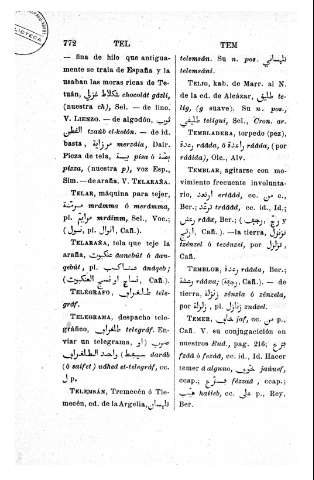 772 TEL TEM
— fina de hilo que antigua-
mente se traia de España y la
usaban las moras ricas de Te-
tuán, شكلاط غزلي chocolát gázli,
(nuestra ch), Sel. — de lino.
V. LIENZO. — de algodón, ثوب
القطن tzaüb el-koton. — de id.
basta, مرزاية merzáia, Dair.
Pieza de tela, بيسة písa ó بيصة
písza, (nuestra p), voz Esp.,
Sim. — de araña. V. TELARAÑA.
TELAR, máquina para tejer,
مرمّة mrámma ó meràmma,
pl. مرايم mráimm, Sel., Voc.;
(نول, pl. انوال, Cañ.).
TELARAÑA, tela que teje la
araña, عنكبوت áanebút ó áan-
quebút, pl. عناكب áenáqeb;
(نساج او نسي العنكبوت, Cañ.).
TELÉGRAFO, طلغراب tele-
gráf.
TELEGRAMA, despacho tele-
gráfico, طلغراب telegráf. En-
viar un telegrama, ضرب (او
سيفط) واحد الطلغراب daráb
(ó saifet) uáhed et-telegráf, cc.
ل p.
TELEMSÁN, Tremecén ó Tle-
mecén, cd. de la Argelia, تلمسان
telemsán. Su n. pos. تلمساني
telemsáni.
TELIO, kab. de Marr. al N.
de la ed. de Alcázar, طليق te-
lig, (g suave). Su n. pos.,
طليقي teligui, Sel., Cron. ar.
TEMBLADERA, torpedo (pez),
رعدة rááda, ó رعادة rááda, (por
rááida), Olc., Alv.
TEMBLAR, agitarse con mo-
vimiento frecuente involunta-
rio, ارتعد ertáád, cc. من c.,
Ber.; ترعد tráád, cc. id., Id.;
رعش ráäx, Ber.; (رجف, و رج
ارتج, Cañ.). — la tierra, تزنزل
tzénzel ó tezénzel, por تزلزل,
Cañ.
TEMBLOR, رعدة rááda, Ber.;
رعدة ráàxa; (رجفة, Cañ.). — de
tierra, زنزلة zénzla ó zénzela,
por زلزلة, pl. زنازل znázel.
TEMER, خاف jaf, cc. من p.,
Cañ. V. su conjugación en
nuestros Rud., pag. 216; فزع
fzáà ó fezáà, cc. id., Id. Hacer
temer á alguno, خوّف jaúuef,
ccap.; فزّع fézzaà, ccap.;
هيّب haiieb, cc. على p., Rey,
Ber.